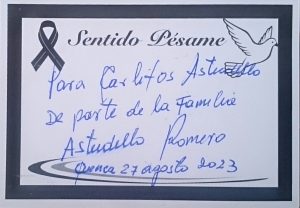 Sentido Pésame
Para Carlitos Astudillo
De parte de la Familia
Astudillo Romero
Cuenca 27 agosto 2023